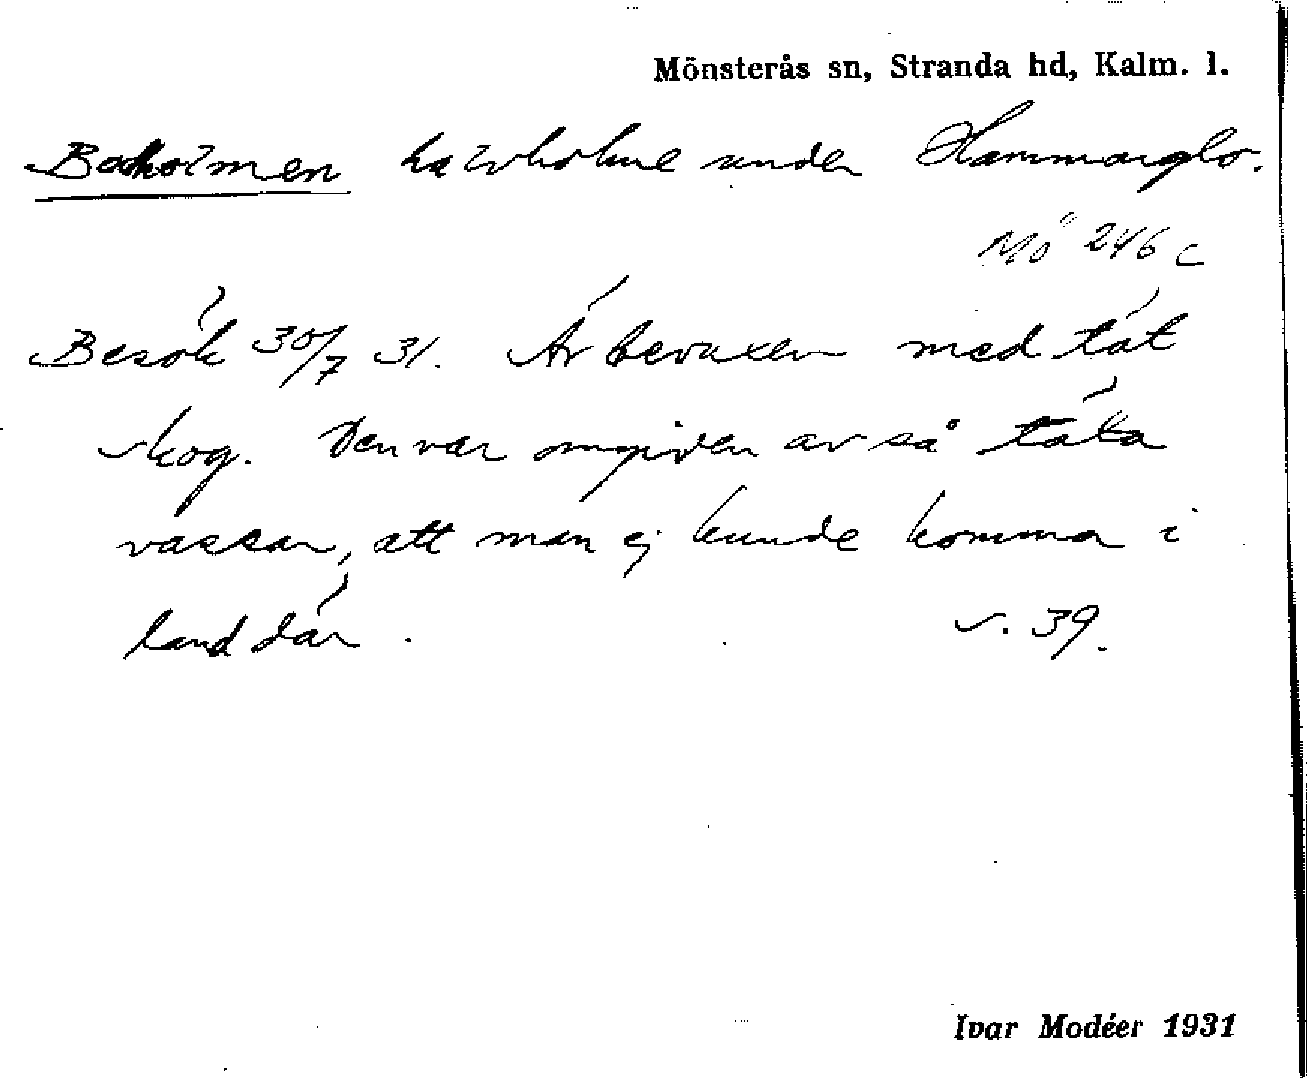 Mönsterås sn, Stranda hd, Kalm. l.
Boholmen havsholme under Hammarglo.
Mö 246 c
Besök 30/7 31. Är bevuxen med tät
skog. Den var omgiven av så täta
vassar, att man ej kunde komma i
land där.
s. 39.
Ivar Modéer 1931